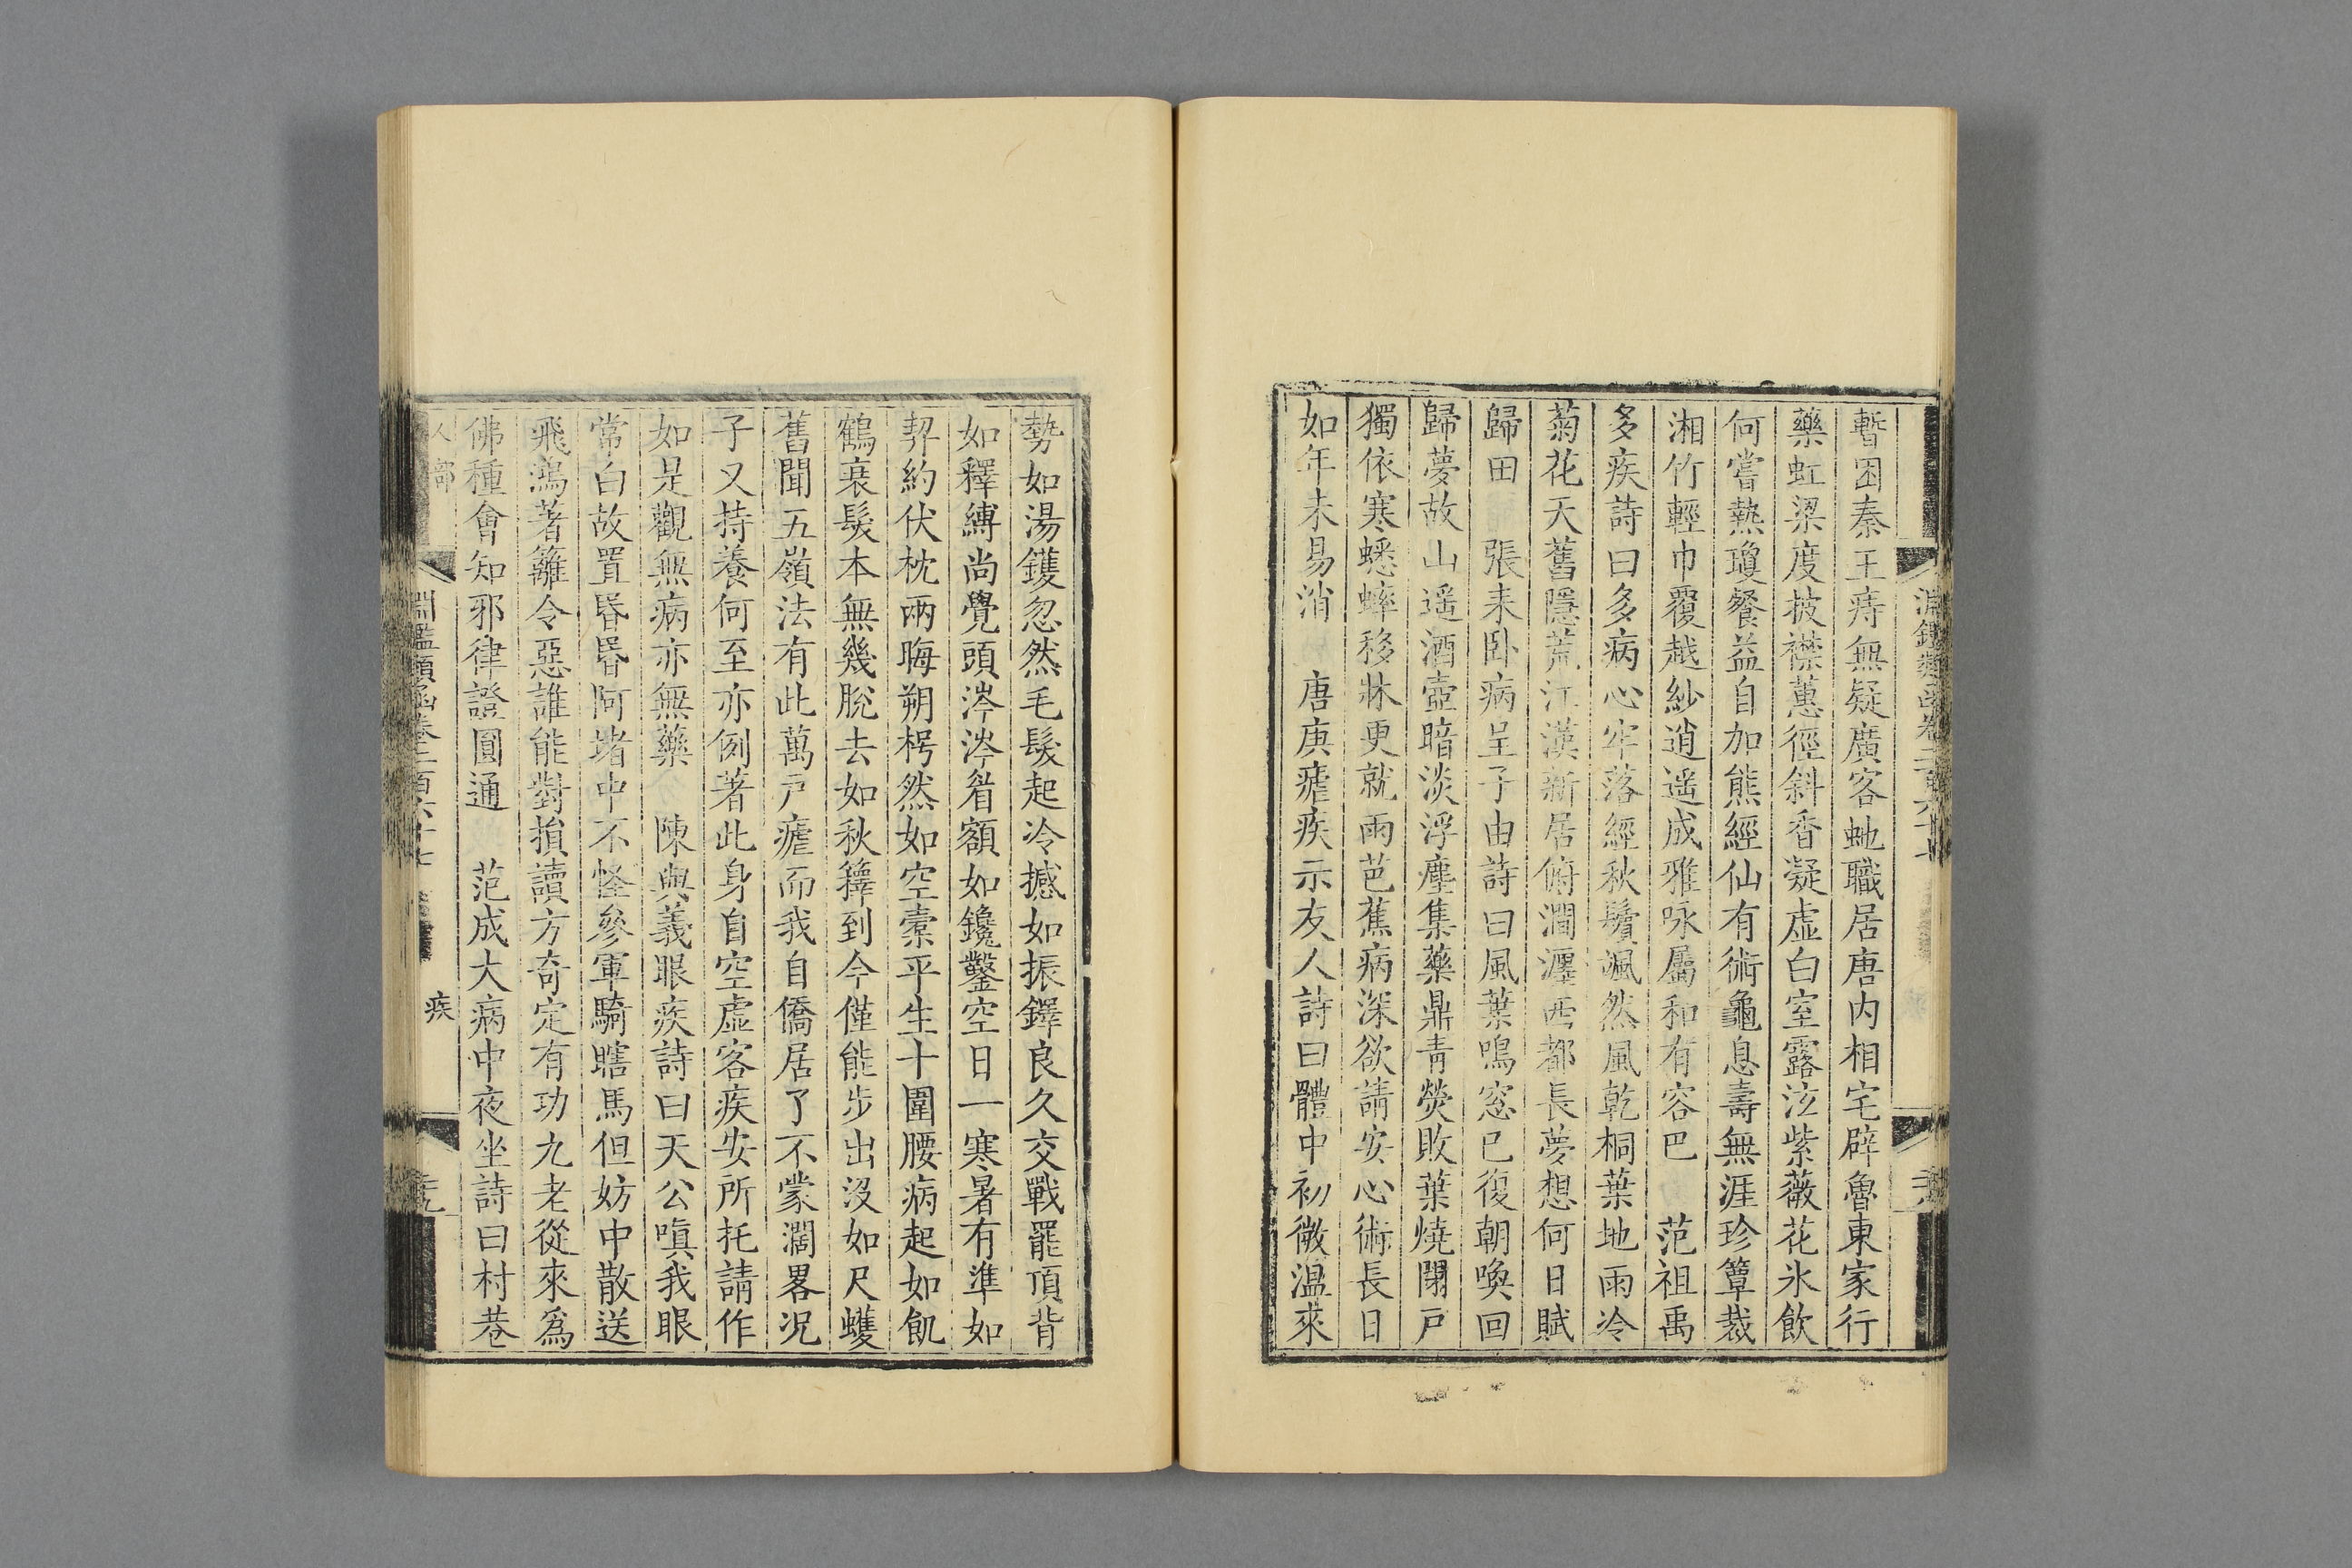 暫困秦王痔無疑廣客虵職居唐内相宅辟魯東家行
藥虹梁度披襟蕙徑斜香凝虚白室露泫紫薇花氷飲
何嘗熱瓊餐益自加熊經仙有術龜息壽無涯珍簟裁
湘竹輕巾覆越紗逍遥成雅咏屬和有容巴　范祖禹
多疾詩曰多病心牢落經秋鬢颯然風乾桐葉地雨冷
菊花天舊隱荒江漢新居俯澗瀍西都長夢想何日賦
歸田　張耒卧病呈子由詩曰風葉鳴窓已復朝喚回
歸夢故山遥酒壺暗淡浮塵集藥鼎青熒敗葉燒閉戸
獨依寒蟋蟀移牀更就雨芭蕉病深欲請安心術長日
如年未易消　唐庚瘧疾示友人詩曰體中初微温來
勢如湯鑊忽然毛髮起冷撼如振鐸良久交戰罷頂背
如釋縛尚覺頭涔涔眉額如鑱鑿空日一寒暑有準如
契約伏枕兩晦朔枵然如空橐平生十圍腰病起如飢
鶴衰髮本無幾脱去如秋籜到今僅能步出没如尺蠖
舊聞五嶺法有此萬戸瘧而我自僑居了不蒙濶畧况
子又持養何至亦例著此身自空虚客疾安所托請作
如是觀無病亦無藥　陳與義眼疾詩曰天公嗔我眼
常白故置昬昬阿堵中不怪參軍騎瞎馬但妨中散送
飛鴻著籬令惡誰能對損讀方奇定有功九老從來爲
佛種會知邪律證圓通　范成大病中夜坐詩曰村巷
人部
淵鑑類函卷二百六十七
疾